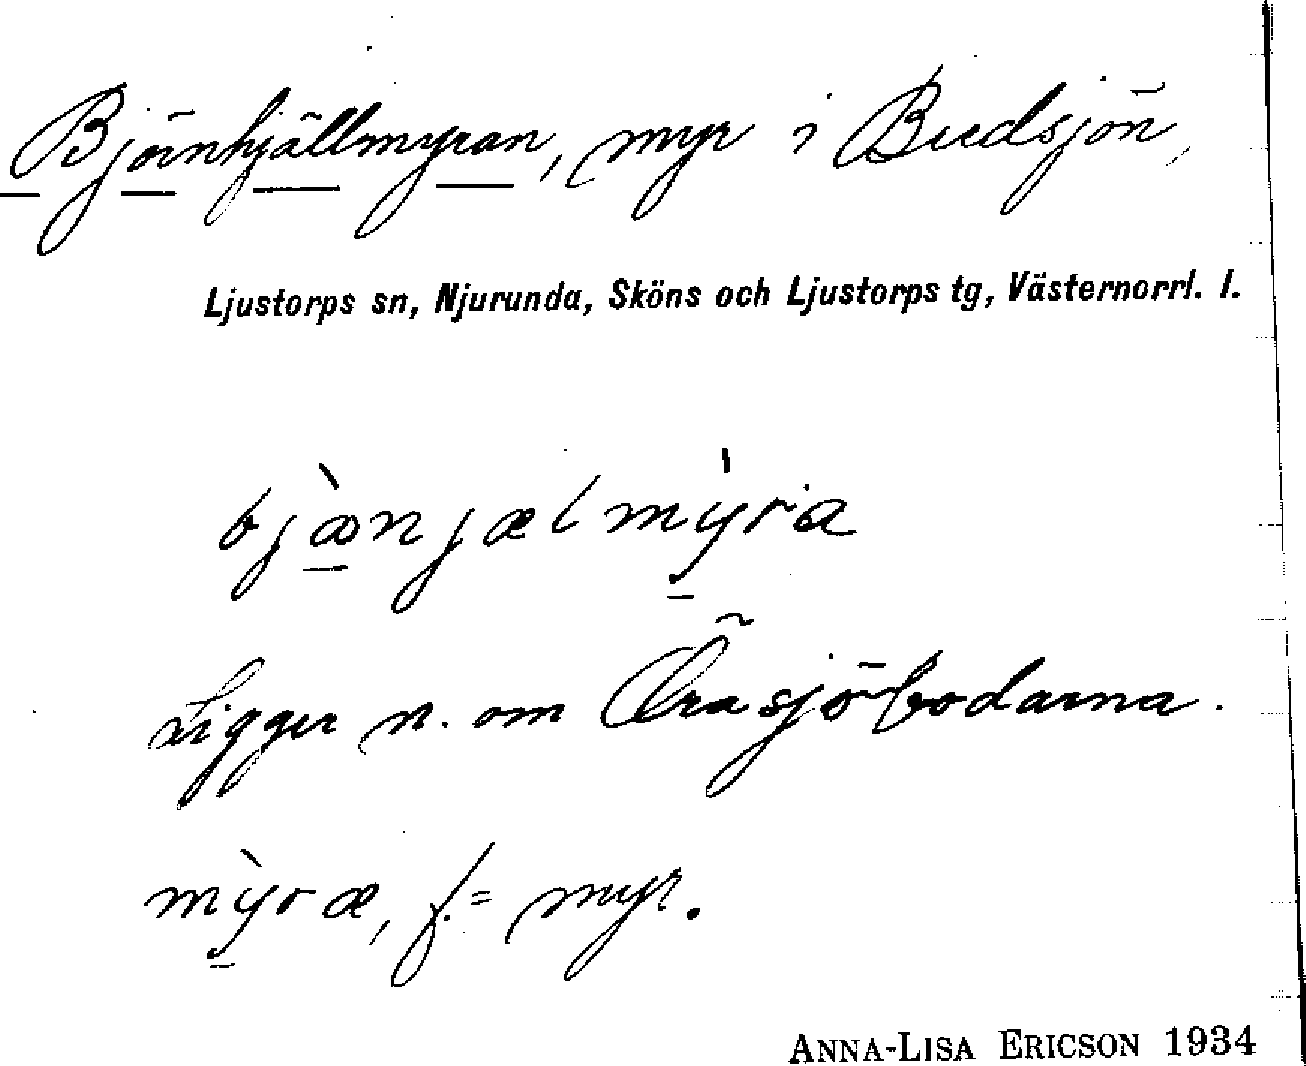 Björnhjällmyran, myr i Bredsjön,
Ljustorps sn, Njurunda, Sköns och Ljustorps tg, Västernorrl. l.
bjæ̀njælmỳra
Ligger n. om Örasjöbodarna.
mỳræ, f. = myr.
ANNA-LISA ERICSON 1934